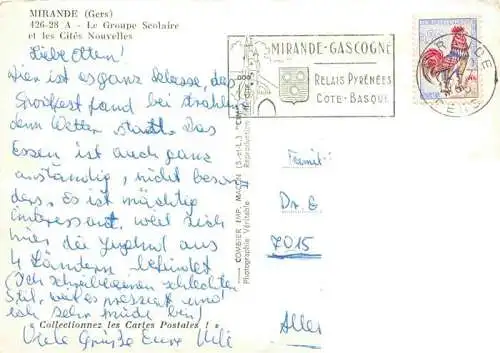 MIRANDE (Gers)
426-28 A - Le Groupe Scolaire
et les Cités Nouvelles
Liebe Eltern!
Hier ist es ganz klasse, das
fand bei strahlen
dem Wetter statt. Das
Essen ist auch ganz
anständig, nicht beson
ders. Es ist mächtig
interessant, weil sich
hier die Jugend aus
4 Ländern befindet
(Ich schreibe einen schlechten
Stil, weil es pressiert und
ich sehr müde bin!
« Collectionnez les Cartes Postales ! »
Viele Grüße Eure Uli
COMBIER IMP. MACON (S.-et-L.) "CIM"
Photographie Véritable - Reproduction
MIRANDE-GASCOGNE
RELAIS PYRÉNÉES
COTE-BASQUE
MIRANDE
GERS
Famil.
Dr. E
7015
Aller